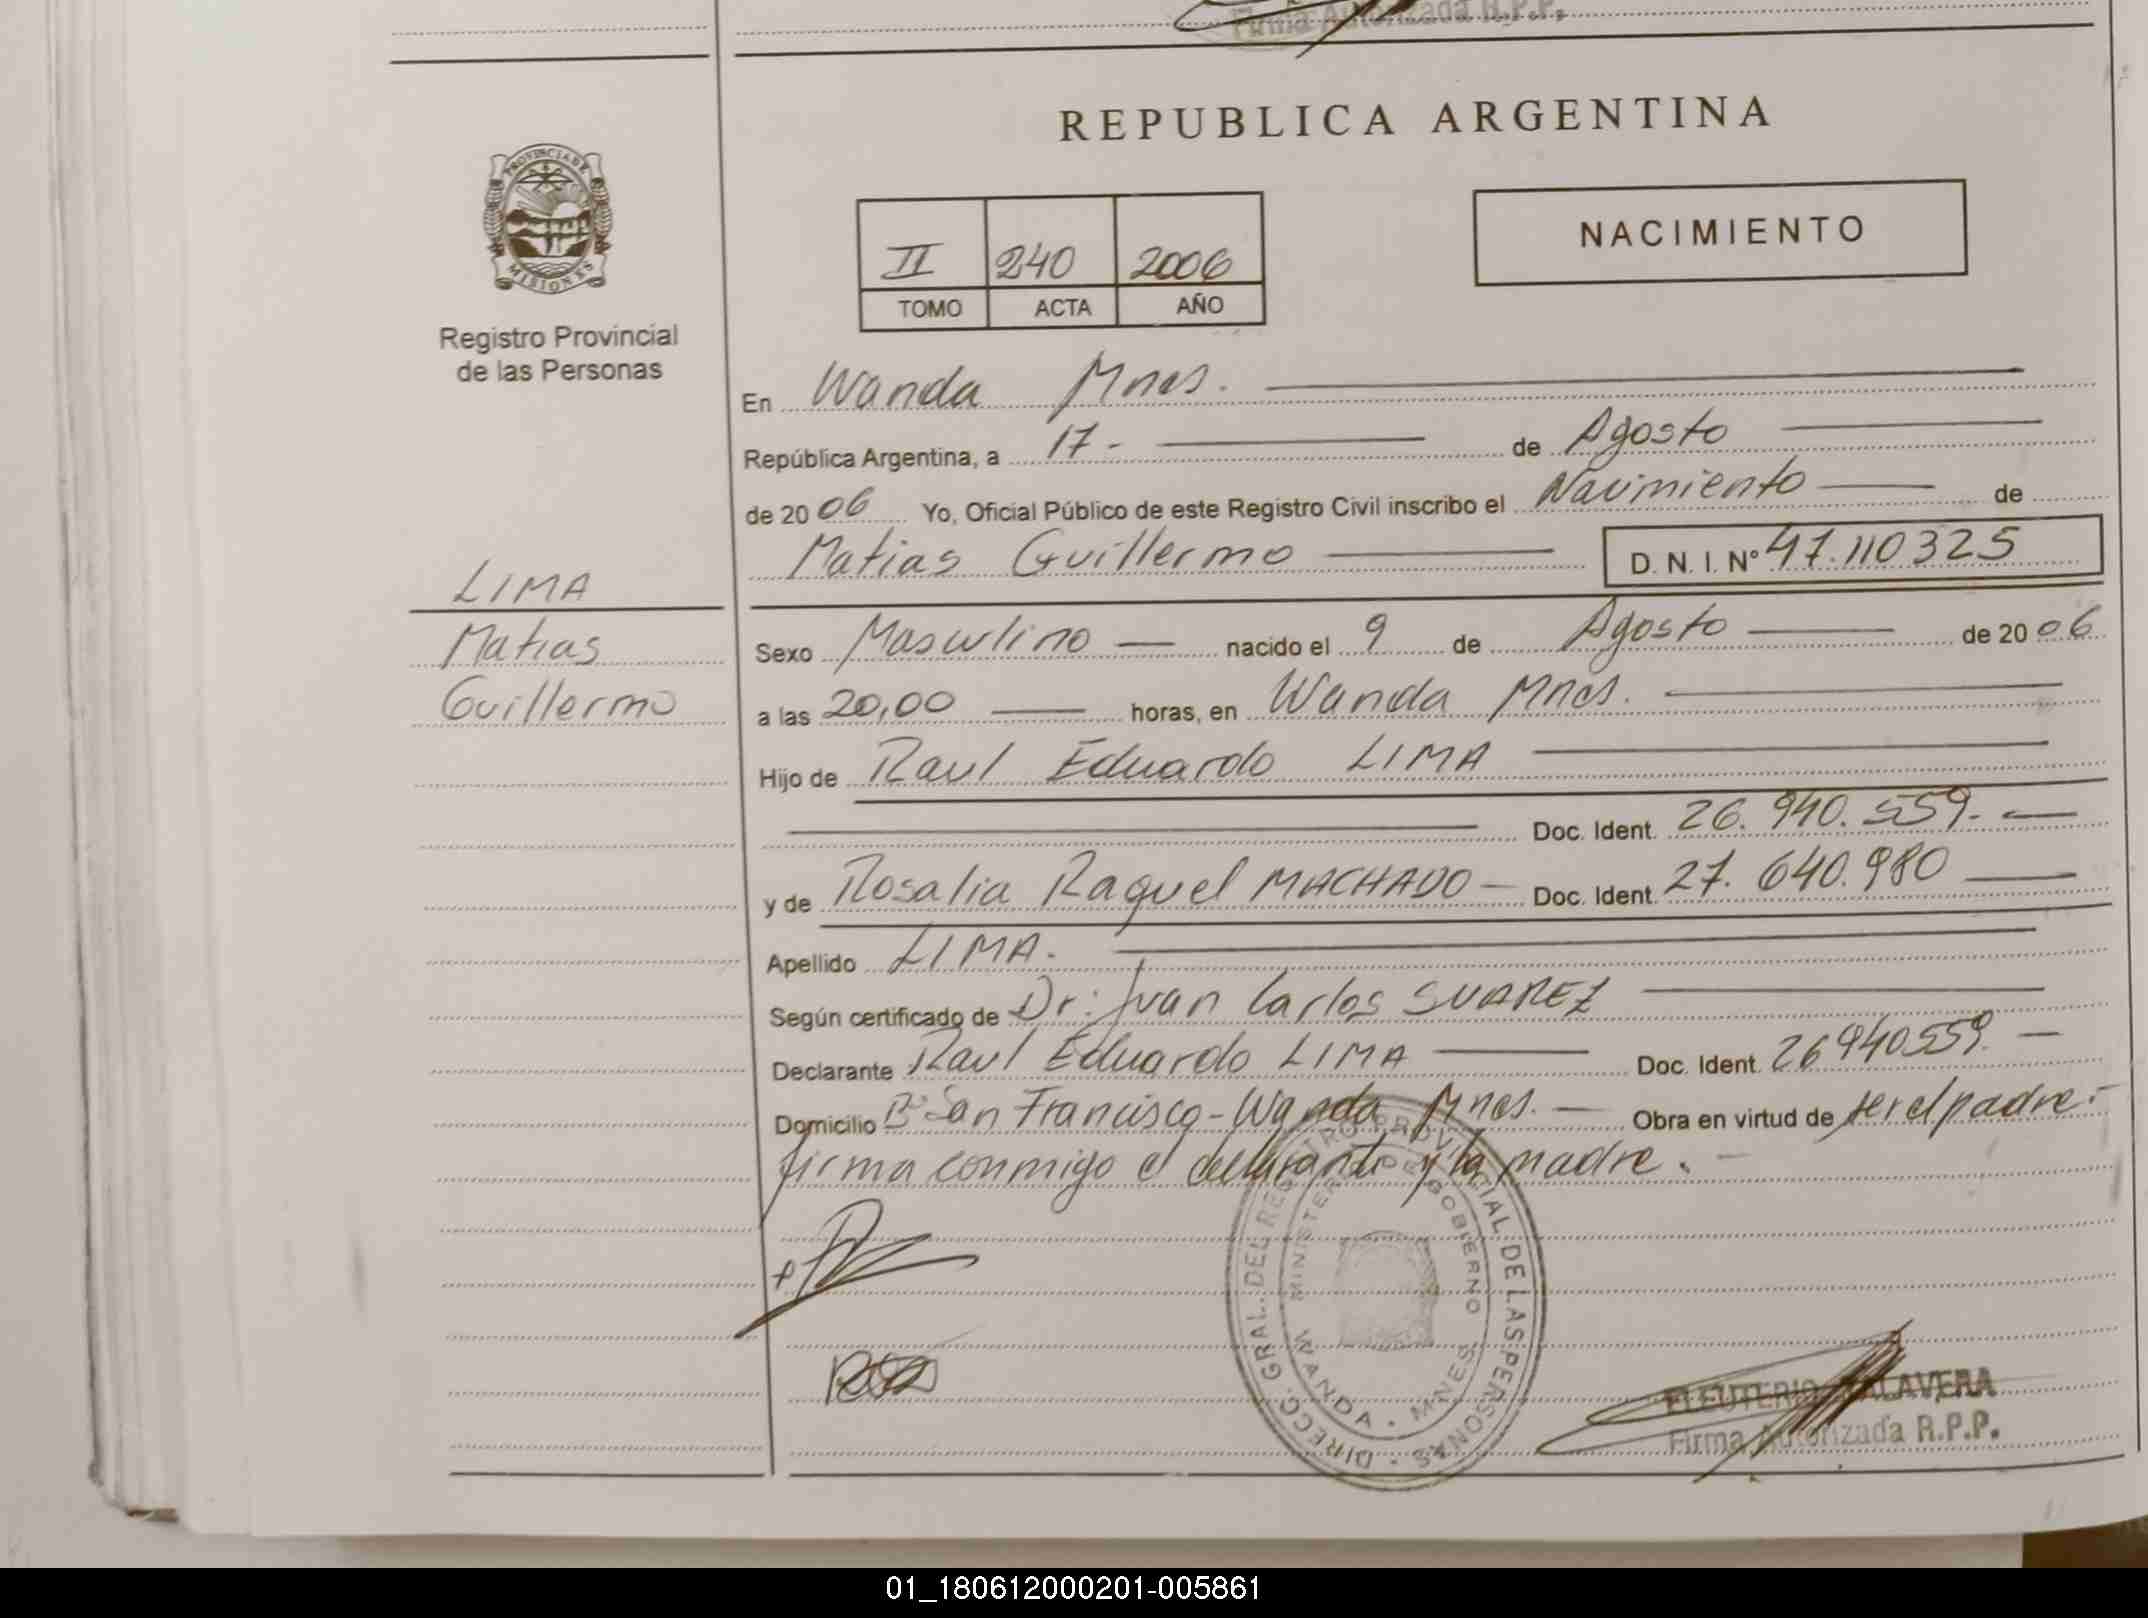 Firma Autorizada R.P.P.
REPUBLICA ARGENTINA
PROVINCIA DE
MISIONES
Registro Provincial
de las Personas
II 240 2006
TOMO ACTA AÑO
NACIMIENTO
En Wanda Mnes.
República Argentina, a 17 - de Agosto
de 2006 Yo, Oficial Público de este Registro Civil inscribo el Nacimiento de
Matias Guillermo D. N. I. Nº 47.110325
LIMA
Matias
Guillermo
Sexo Masculino nacido el 9 de Agosto de 2006
a las 20,00 horas, en Wanda Mnes.
Hijo de Raul Eduardo LIMA
Doc. Ident. 26.940.559.
y de Rosalia Raquel MACHADO Doc. Ident. 27.640.980
Apellido LIMA.
Según certificado de Dr: Juan Carlos SUAREZ
Declarante Raul Eduardo LIMA Doc. Ident. 26940559.
Domicilio Bº San Francisco - Wanda Mnes. Obra en virtud de ser el padre.
firma conmigo el declarante y la madre.
DIRECC. GRAL. DEL REGISTRO PROVINCIAL DE LAS PERSONAS
MINISTERIO DE GOBIERNO
WANDA - MNES
ELEUTERIO TALAVERA
Firma Autorizada R.P.P.
01_180612000201-005861